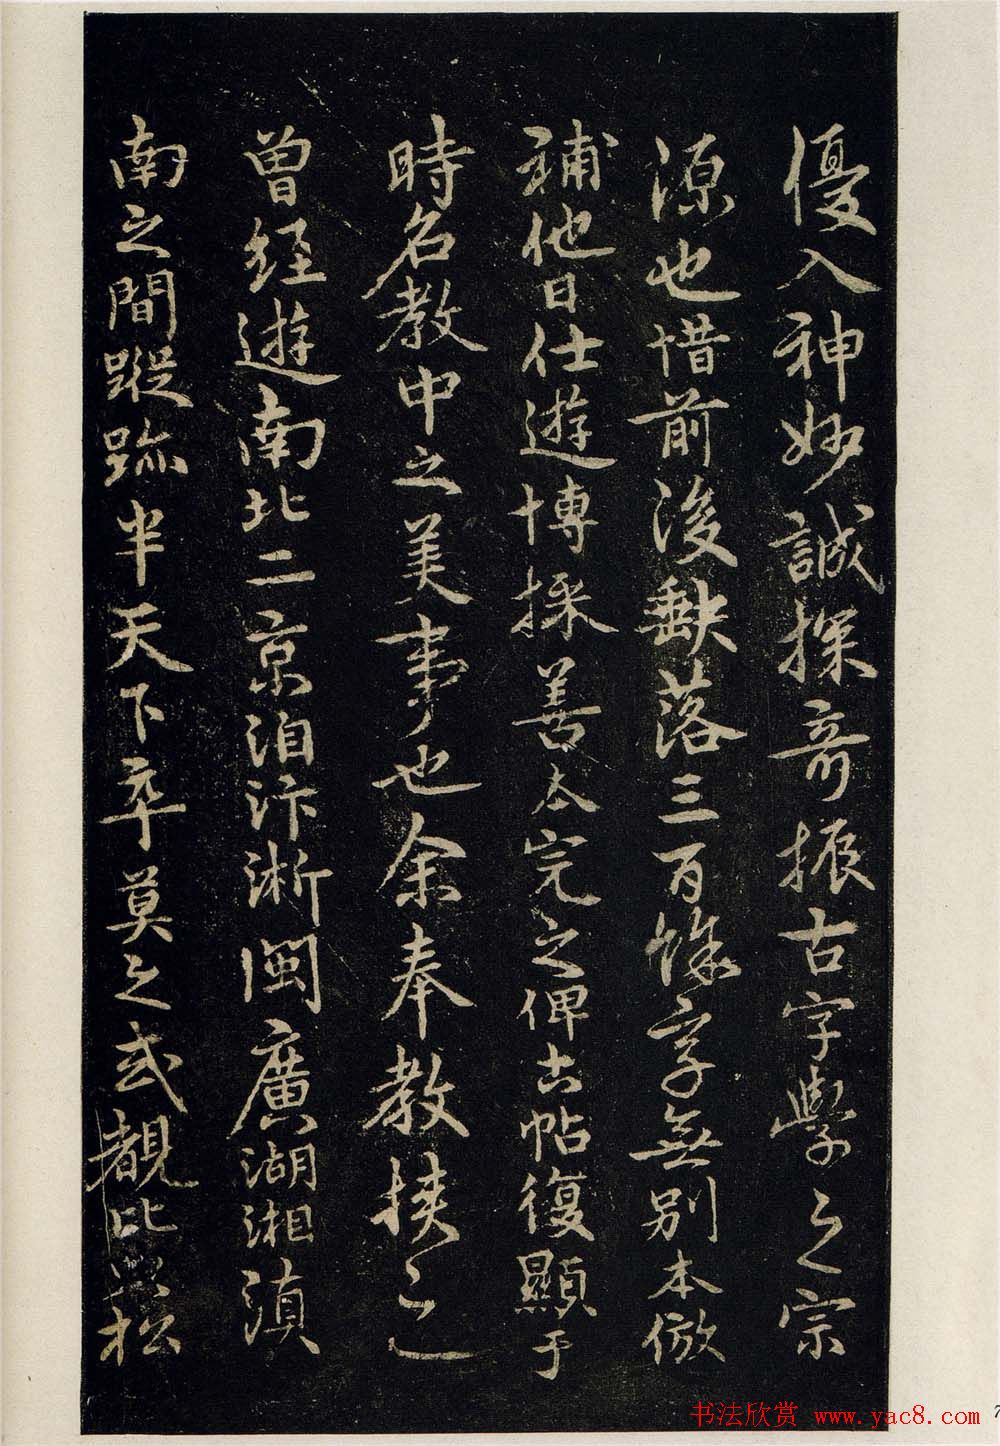 優入神妙誠探奇振古字學之宗
源也惜前後缺落三百餘字無別本倣
補他日仕遊博採善本完之俾古帖復顯于
時名教中之美事也余奉教挾之
曾經遊南北二京洎汴淅閩廣湖湘滇
南之間蹤跡半天下卒莫之或覯比以松
书法欣赏 www.yac8.com
7